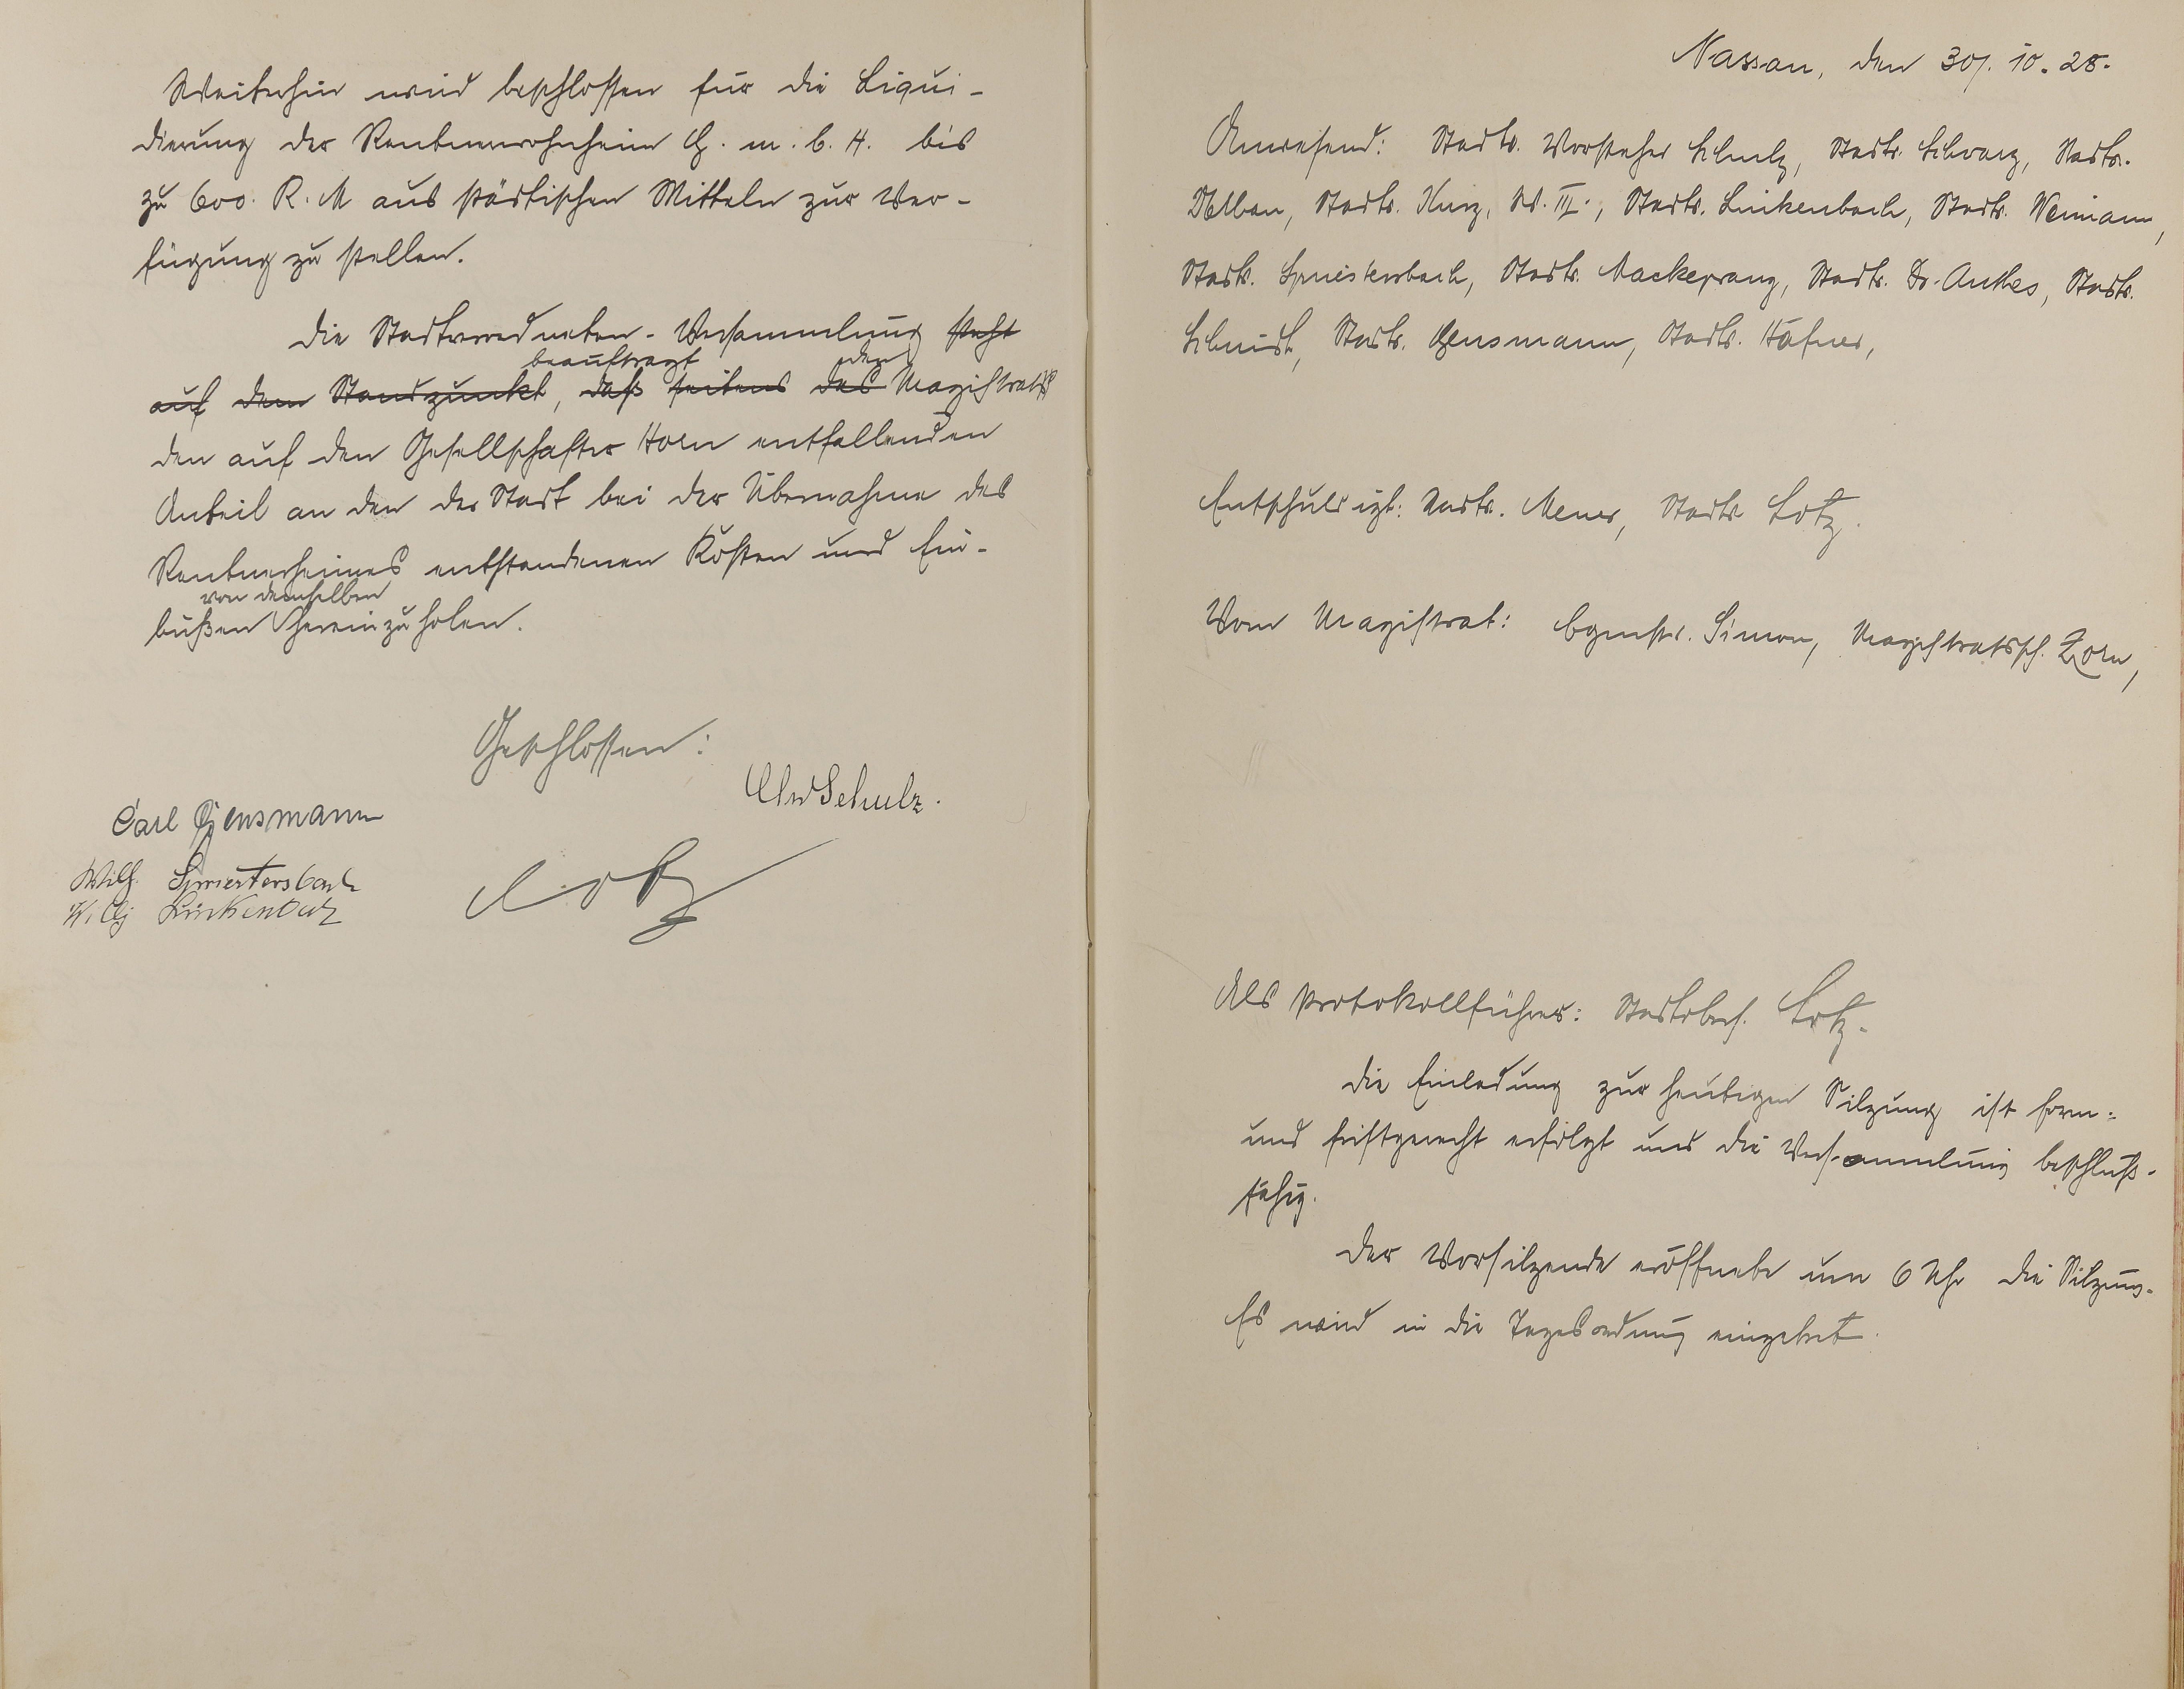 Weiterhin wird beschlossen für die Liqui-
dierung der Rentnerwohnheim G. m. b. H. bis
zu 600. R. M aus städtischen Mitteln zur Ver-
fügung zu stellen.
Die Stadtverordneten-Versammlung steht
beauftragt den
auf dem Standpunkt, daß seitens des Magistrats
den auf den Gesellschafter Horn entfallenden
Anteil an den der Stadt bei der Übernahme des
Rentnerheimes entstandenen Kosten und Ein-
von demselben
bußen hereinzuholen.
Geschlossen:
Schulz.
Carl Gensmann
Wilh. Spriestersbach
Willy Linkenbach
Lotz
Nassau, den 30. 10. 28.
Anwesend: Stadtv. Vorsteher Schulz, Stadtv. Schwarz, Stadtv.
Stadtv. Kurz, W. III., Stadtv. Linkenbach, Stadtv. Weimann,
Stadtv. Spriestersbach, Stadtv. Mackeprang, Stadtv. Dr. Anthes, Stadtv.
Schmidt, Stadtv. Gensmann, Stadtv. Häfner,
Entschuldigt: Stadtv. Meuer, Stadtv. Lotz.
Vom Magistrat: Bgmstr. Simon, Magistratssch. Zorn,
Als Protokollführer: Stadtobers. Lotz.
Die Einladung zur heutigen Sitzung ist form-
und fristgerecht erfolgt und die Versammlung beschluß-
fähig.
Der Vorsitzende eröffnete um 6 Uhr die Sitzung.
Es wird in die Tagesordnung eingetret.